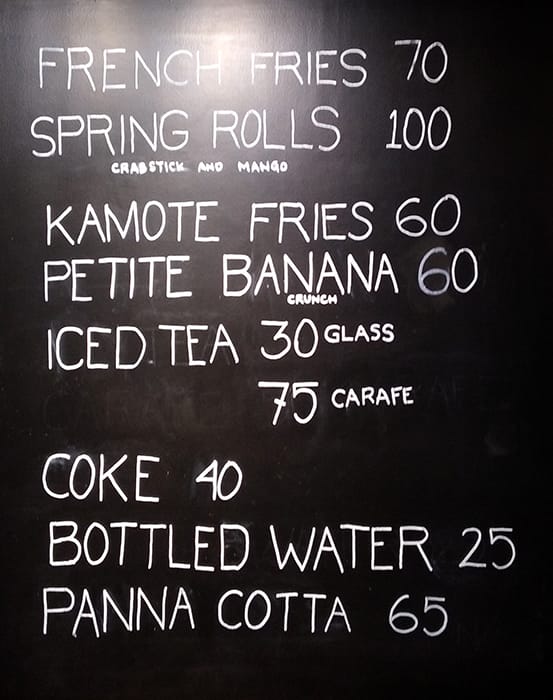 FRENCH FRIES 70
SPRING ROLLS 100
CRABSTICK AND MANGO
KAMOTE FRIES 60
PETITE BANANA 60
CRUNCH
ICED TEA 30 GLASS
75 CARAFE
COKE 40
BOTTLED WATER 25
PANNA COTTA 65